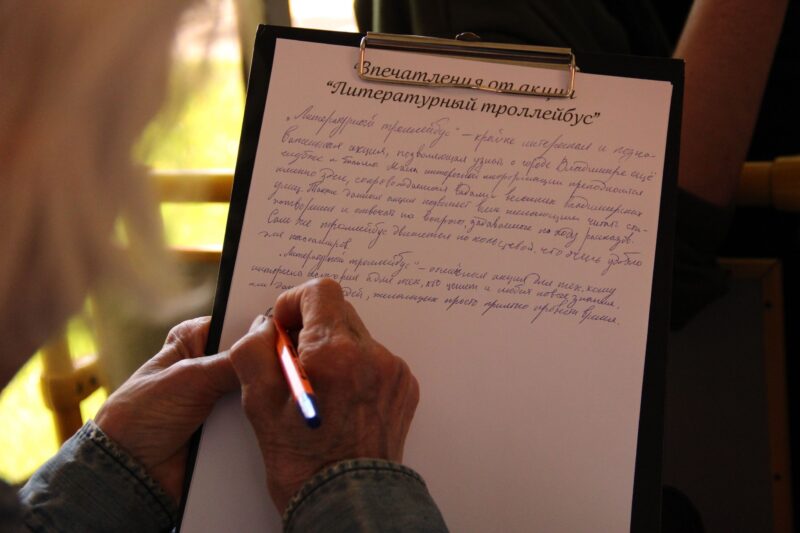 “Впечатления от акции
“Литературный троллейбус”
„Литературной троллейбус“ – крайне интересная и позна-
вательная акция, позволяющая узнать о городе Владимире ещё
глубже и больше. Много интересной информации преподносится
именно здесь, сопровождаемая видами великих владимирских
улиц. Также данная акция позволяет всем желающим читать сти-
хотворения и отвечать на вопросы, задаваемые по ходу рассказов.
Сам же троллейбус движется по кольцевой, что очень удобно
для пассажиров.
„Литературной троллейбус“ – отличная акция для тех, кому
интересна история, для тех, кто ценит и любит новые знания,
или для людей, желающих просто приятно провести время.